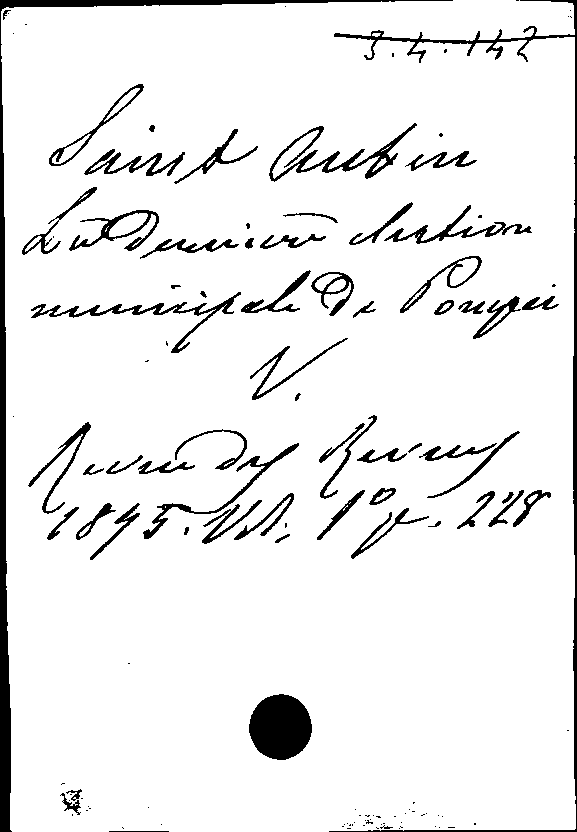 3.4.142
Saint Aubin
La Dernière élection
municipale de Pompei
V.
Revue des Revues
1895. Vol. 1º p. 228